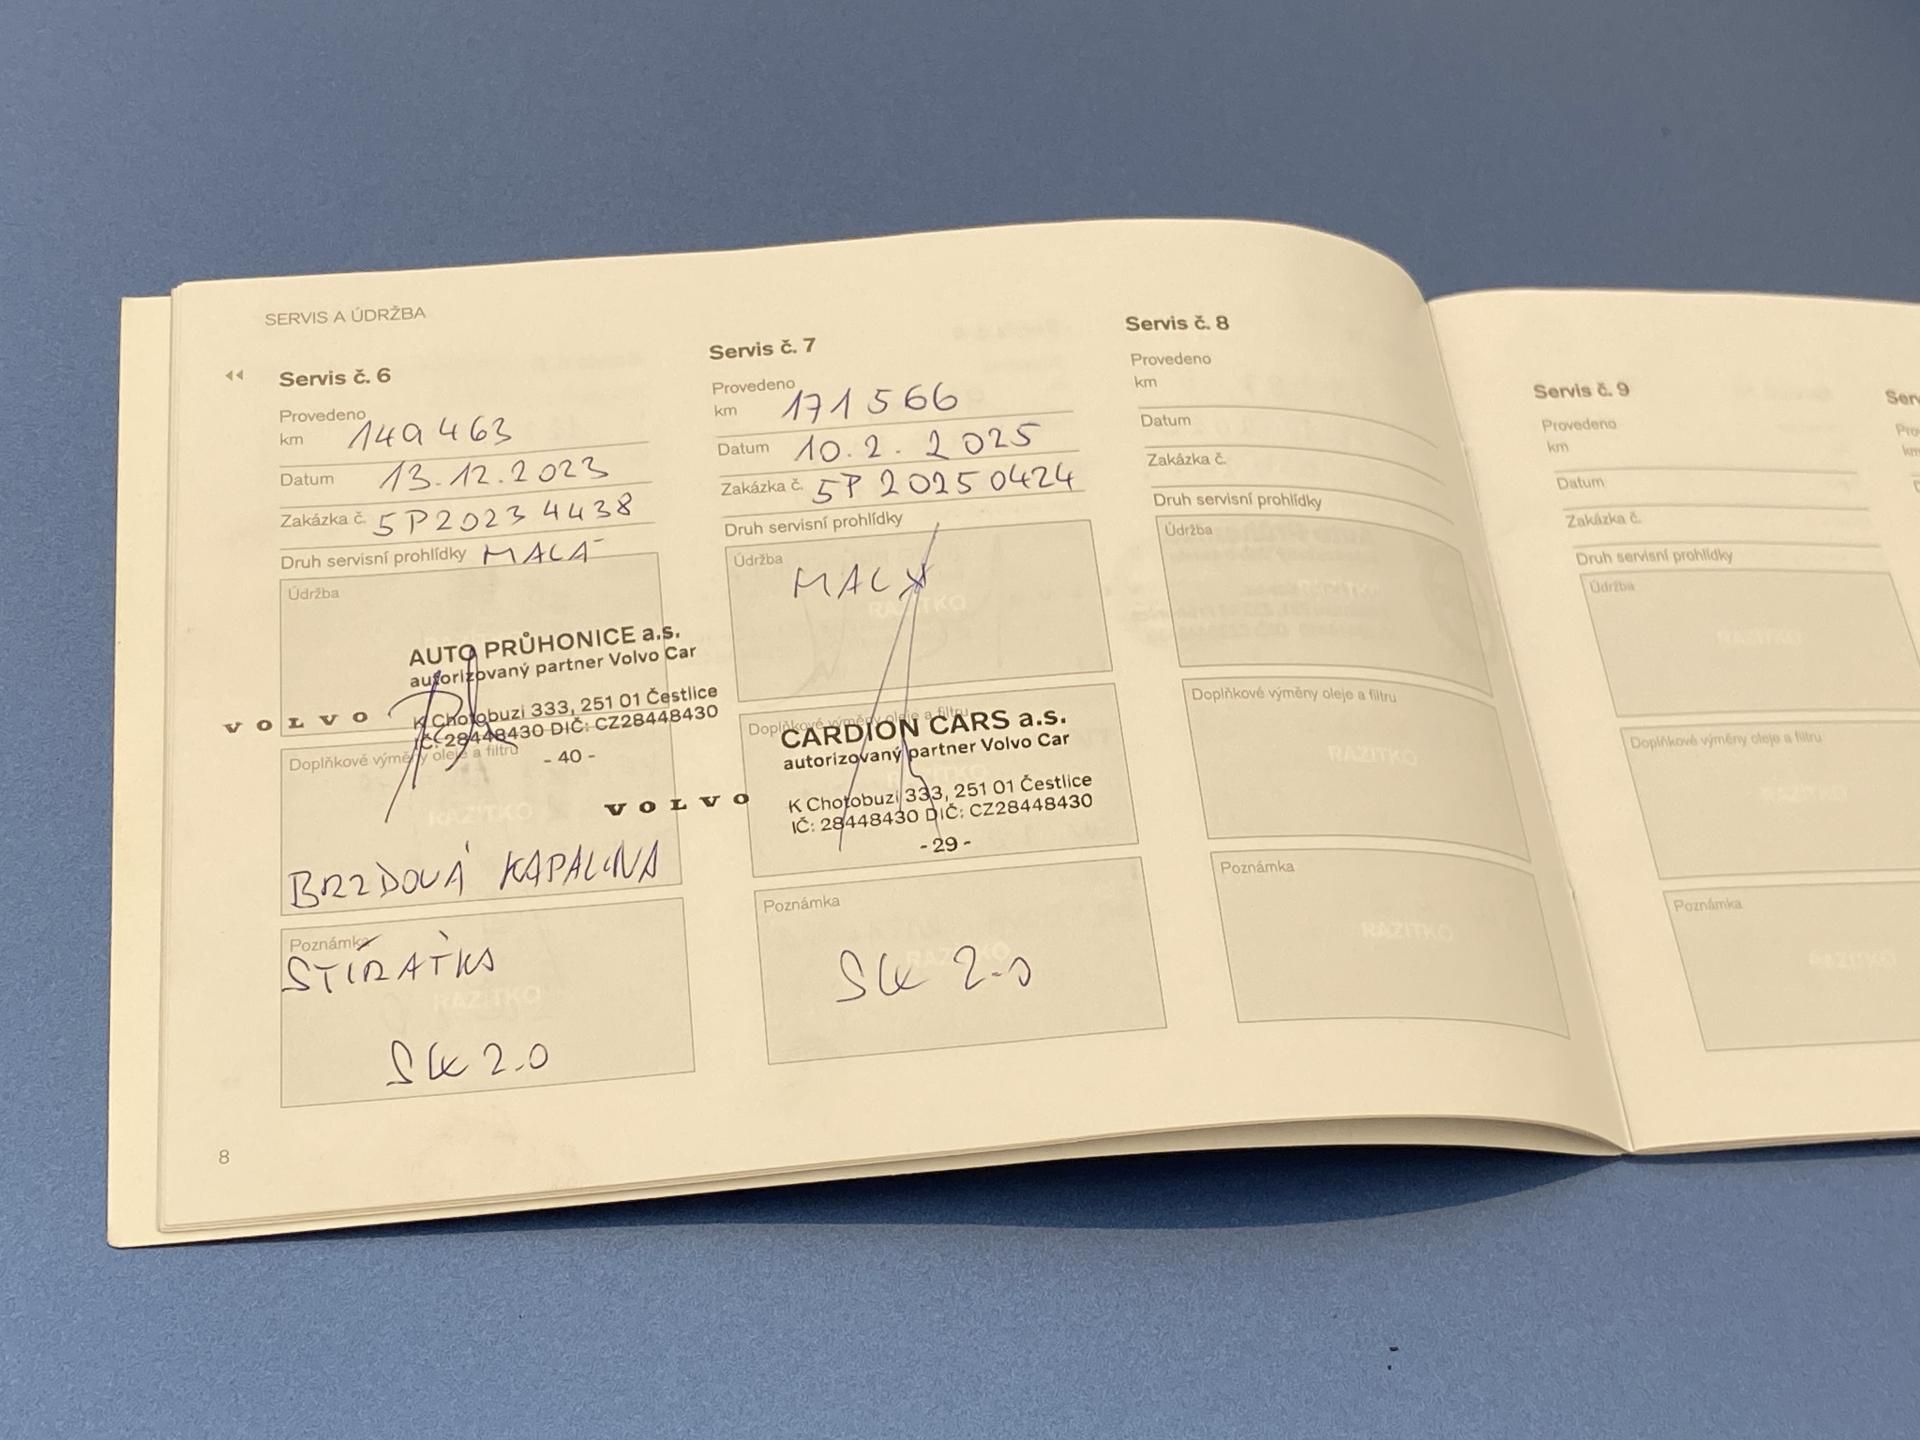 SERVIS A ÚDRŽBA
Servis č. 6
Provedeno
km 149 463
Datum 13.12.2023
Zakázka č. 5P2023 4438
Druh servisní prohlídky MALÁ
Údržba
AUTO PRŮHONICE a.s.
autorizovaný partner Volvo Car
VOLVO
K Chotobuzi 333, 251 01 Čestlice
IČ: 28448430 DIČ: CZ28448430
Doplňkové výměny oleje a filtru
- 40 -
RAZÍTKO
BRZDOVÁ KAPALINA
Poznámka
STÍRÁTKA
RAZÍTKO
SK 2.0
8
Servis č. 7
Provedeno
km 171 566
Datum 10.2. 2025
Zakázka č. 5P 2025 0424
Druh servisní prohlídky
Údržba
MALÁ
RAZÍTKO
Doplňkové výměny oleje a filtru
CARDION CARS a.s.
autorizovaný partner Volvo Car
VOLVO
K Chotobuzi 333, 251 01 Čestlice
IČ: 28448430 DIČ: CZ28448430
- 29 -
Poznámka
RAZÍTKO
SK 2.0
Servis č. 8
Provedeno
km
Datum
Zakázka č.
Druh servisní prohlídky
Údržba
RAZÍTKO
Doplňkové výměny oleje a filtru
RAZÍTKO
Poznámka
RAZÍTKO
Servis č. 9
Provedeno
km
Datum
Zakázka č.
Druh servisní prohlídky
Údržba
RAZÍTKO
Doplňkové výměny oleje a filtru
RAZÍTKO
Poznámka
RAZÍTKO